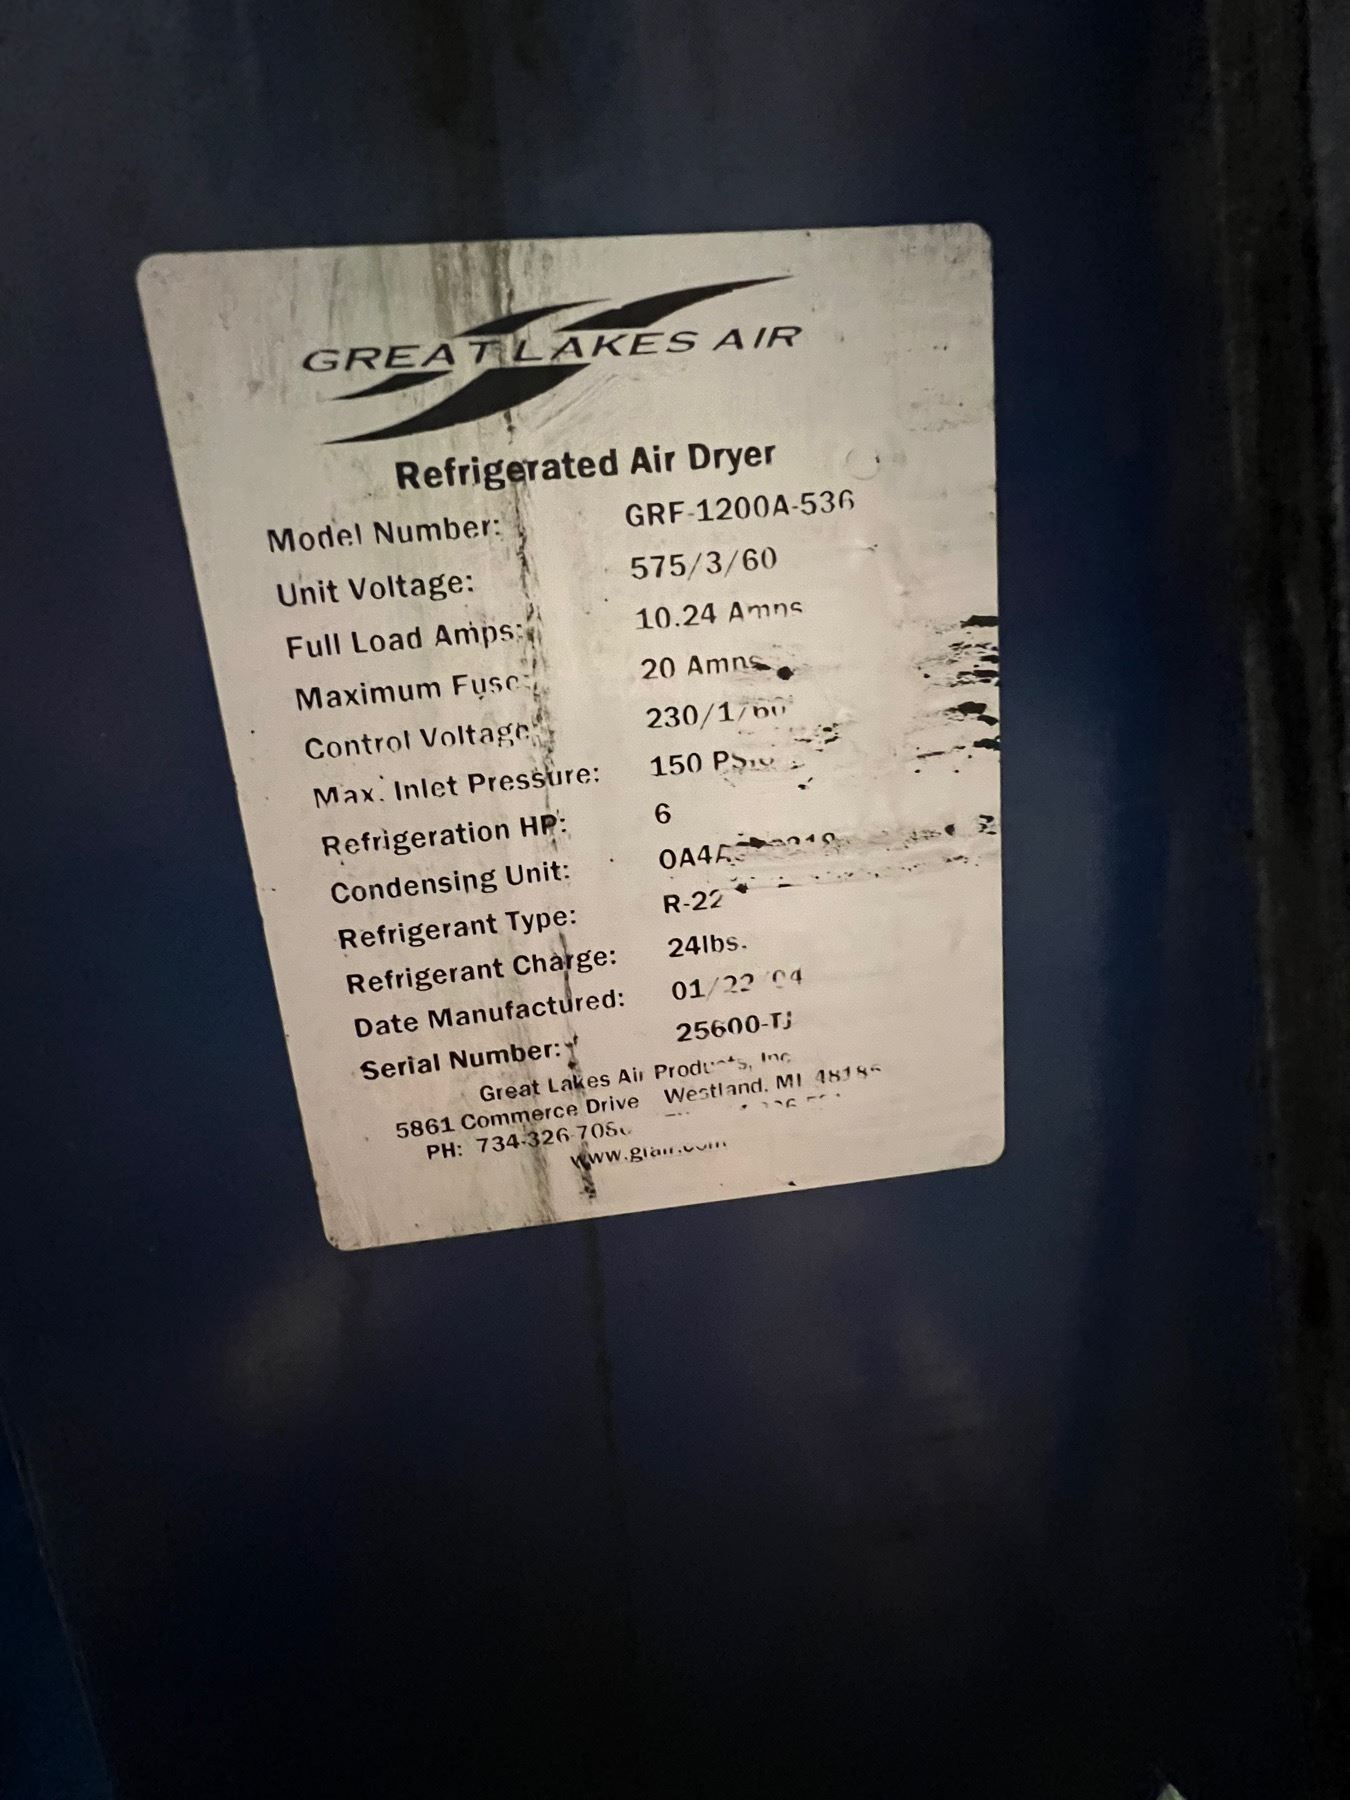 GREAT LAKES AIR
Refrigerated Air Dryer
Model Number: GRF-1200A-536
Unit Voltage: 575/3/60
Full Load Amps: 10.24 Amps
Maximum Fuse: 20 Amps
Control Voltage: 230/1/60
Max. Inlet Pressure: 150 PSIG
Refrigeration HP: 6
Condensing Unit:
Refrigerant Type: R-22
Refrigerant Charge: 24lbs.
Date Manufactured: 01/22/04
Serial Number: 25600-TJ
Great Lakes Air Products, Inc
5861 Commerce Drive Westland, MI
PH:
www.glair.com